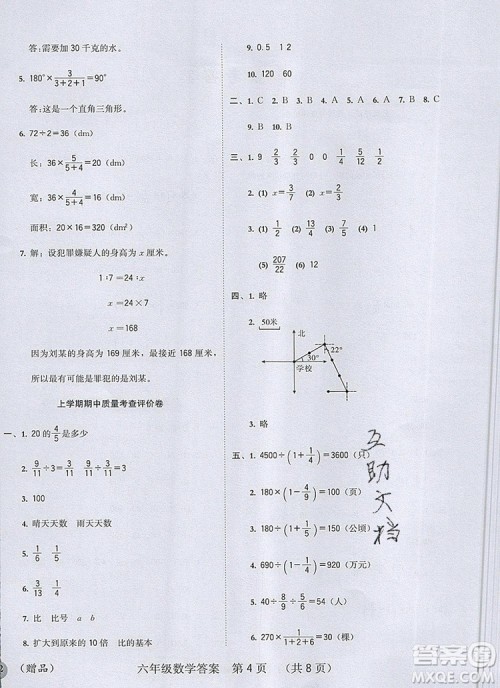 答：需要加 30 千克的水。
5. 180°×3/(3+2+1)=90°
答：这是一个直角三角形。
6. 72÷2=36（dm）
长：36×5/(5+4)=20（dm）
宽：36×4/(5+4)=16（dm）
面积：20×16=320（dm²）
7. 解：设犯罪嫌疑人的身高为 x 厘米。
1∶7=24∶x
x=24×7
x=168
因为刘某的身高为 169 厘米，最接近 168 厘米，
所以最有可能是罪犯的是刘某。
上学期期中质量考查评价卷
一、1. 20 的 4/5 是多少
2. 9/11 3/11 9/11÷3/11=3
3. 100
4. 晴天天数 雨天天数
5. 1/6 1/5
6. 3/13 1/31
7. 比 比号 a b
8. 扩大到原来的 10 倍 比的基本
9. 0.5 12
10. 120 60
二、1. C 2. B 3. C 4. A 5. B 6. A 7. B 8. C
9. B 10. B
三、1. 9 2/3 2/3 0 1/4 5/4 1/2
2. (1) x=3/7 (2) x=1/3
3. (1) 2/7 (2) 13/4 (3) 1 (4) 9
(5) 207/22 (6) 1/33
四、1. 略
2. 50米
北
22°
30°
学校
3. 略
五、1. 4500÷(1+1/4)=3600（只）
2. 180×(1-4/9)=100（页）
3. 180÷(1-1/6)... 
4. 920÷... =920（万元）
6. 270×... （棵）
互助文档
（赠品） 六年级数学答案 第 4 页 （共 8 页）
MXQE.COM